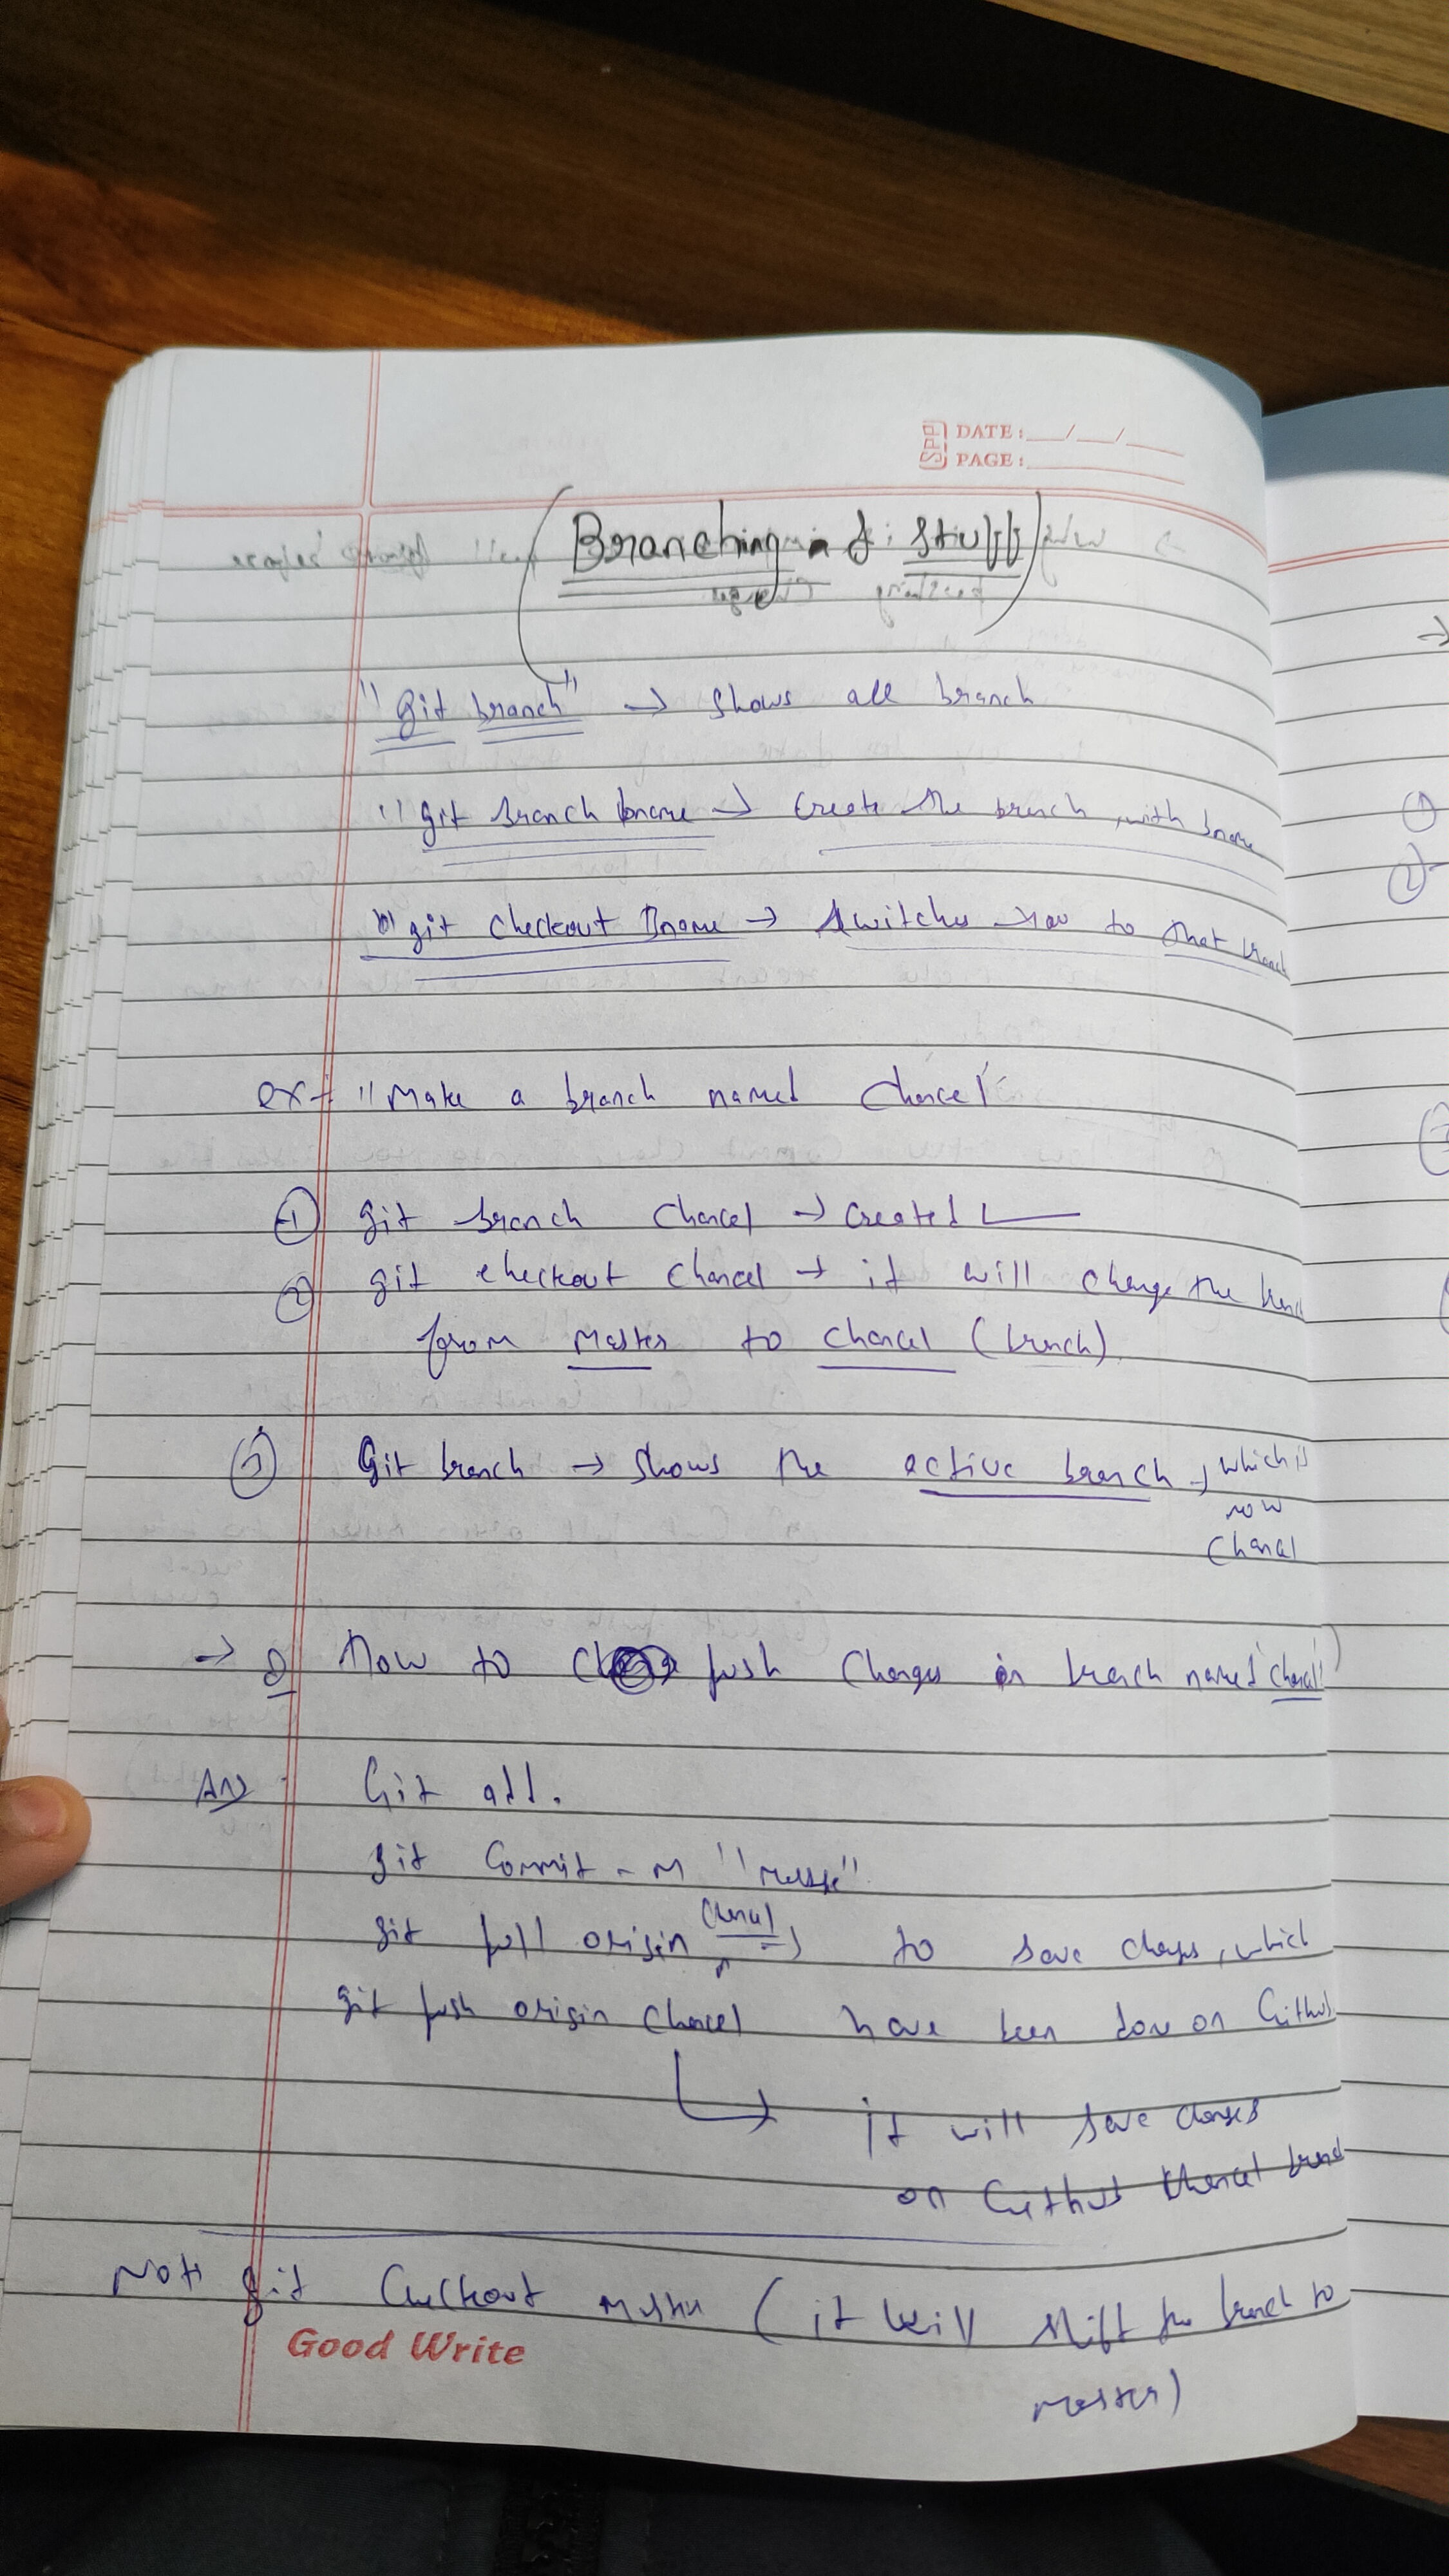 DATE: __/__/__
PAGE:
Branching & Stuff
"Git branch" → shows all branch
"git branch bname → create the branch, with bname
"git checkout Bname → switches to that branch
ex- "Make a branch named chancel
① git branch chancel → created
② git checkout chancel → it will change the branch
from master to chancel (branch)
③ Git branch → shows the active branch, which is
now
chancel
→ Q How to push changes in branch named 'chancel'
Ans Git add.
git commit -m "
chancel
git pull origin → to save changes, which
git push origin chancel have been done on Github
it will save changes
on Github chancel branch
Note git checkout master (it will shift the branch to
master)
Good Write